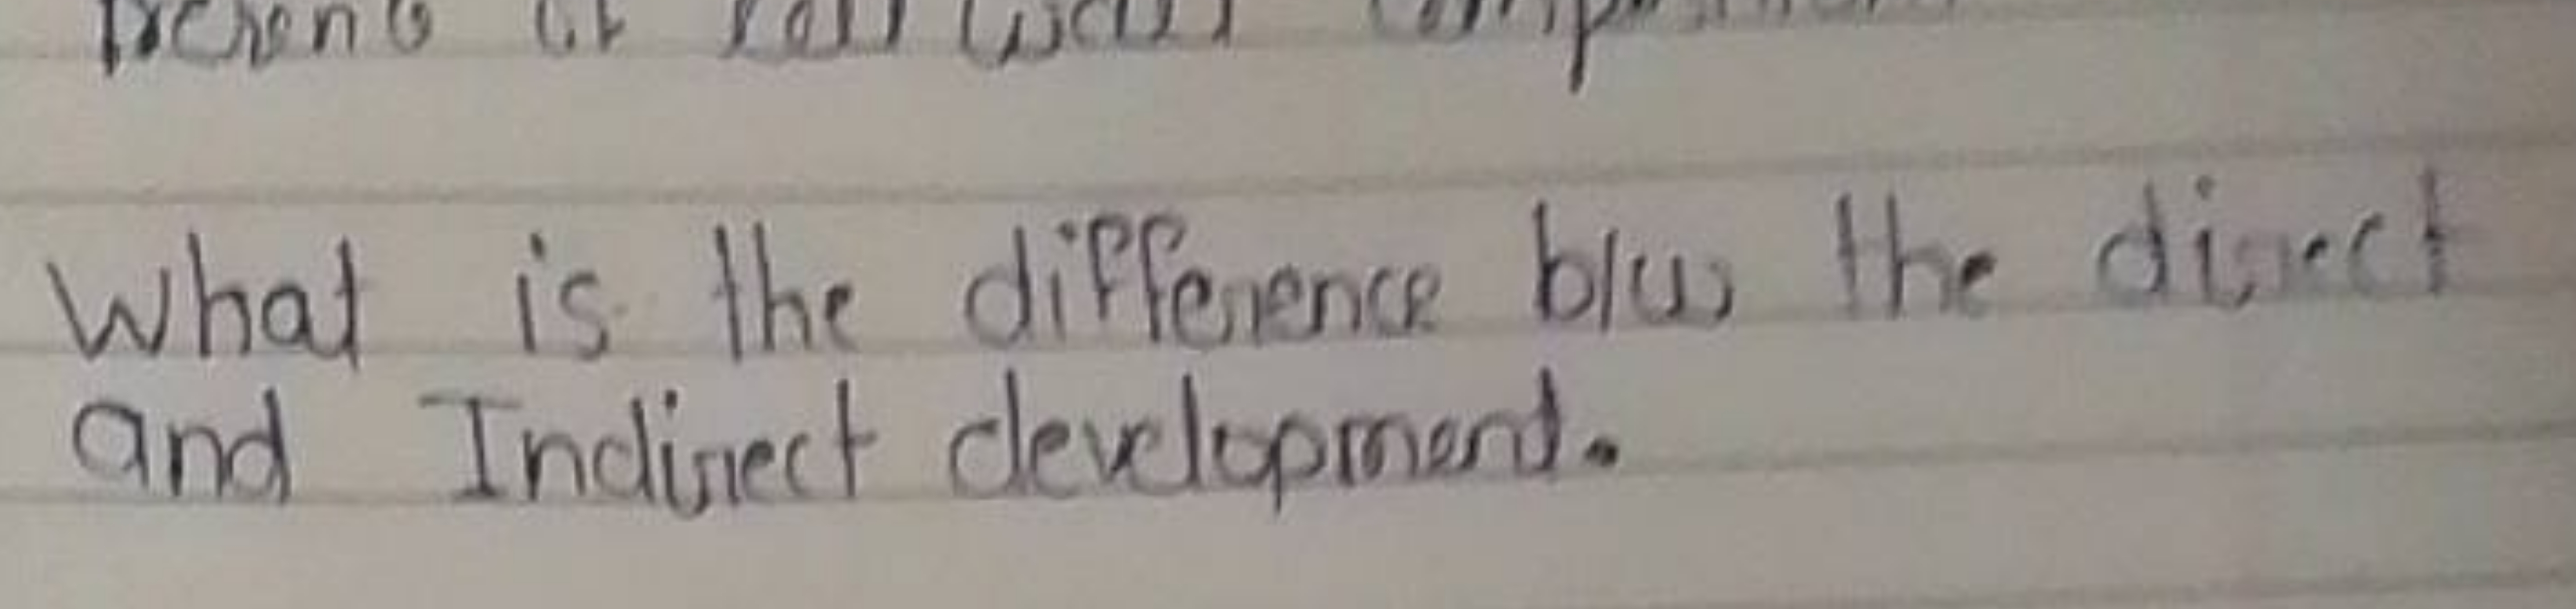 cell wall
What is the difference b/w the direct
and Indirect development.